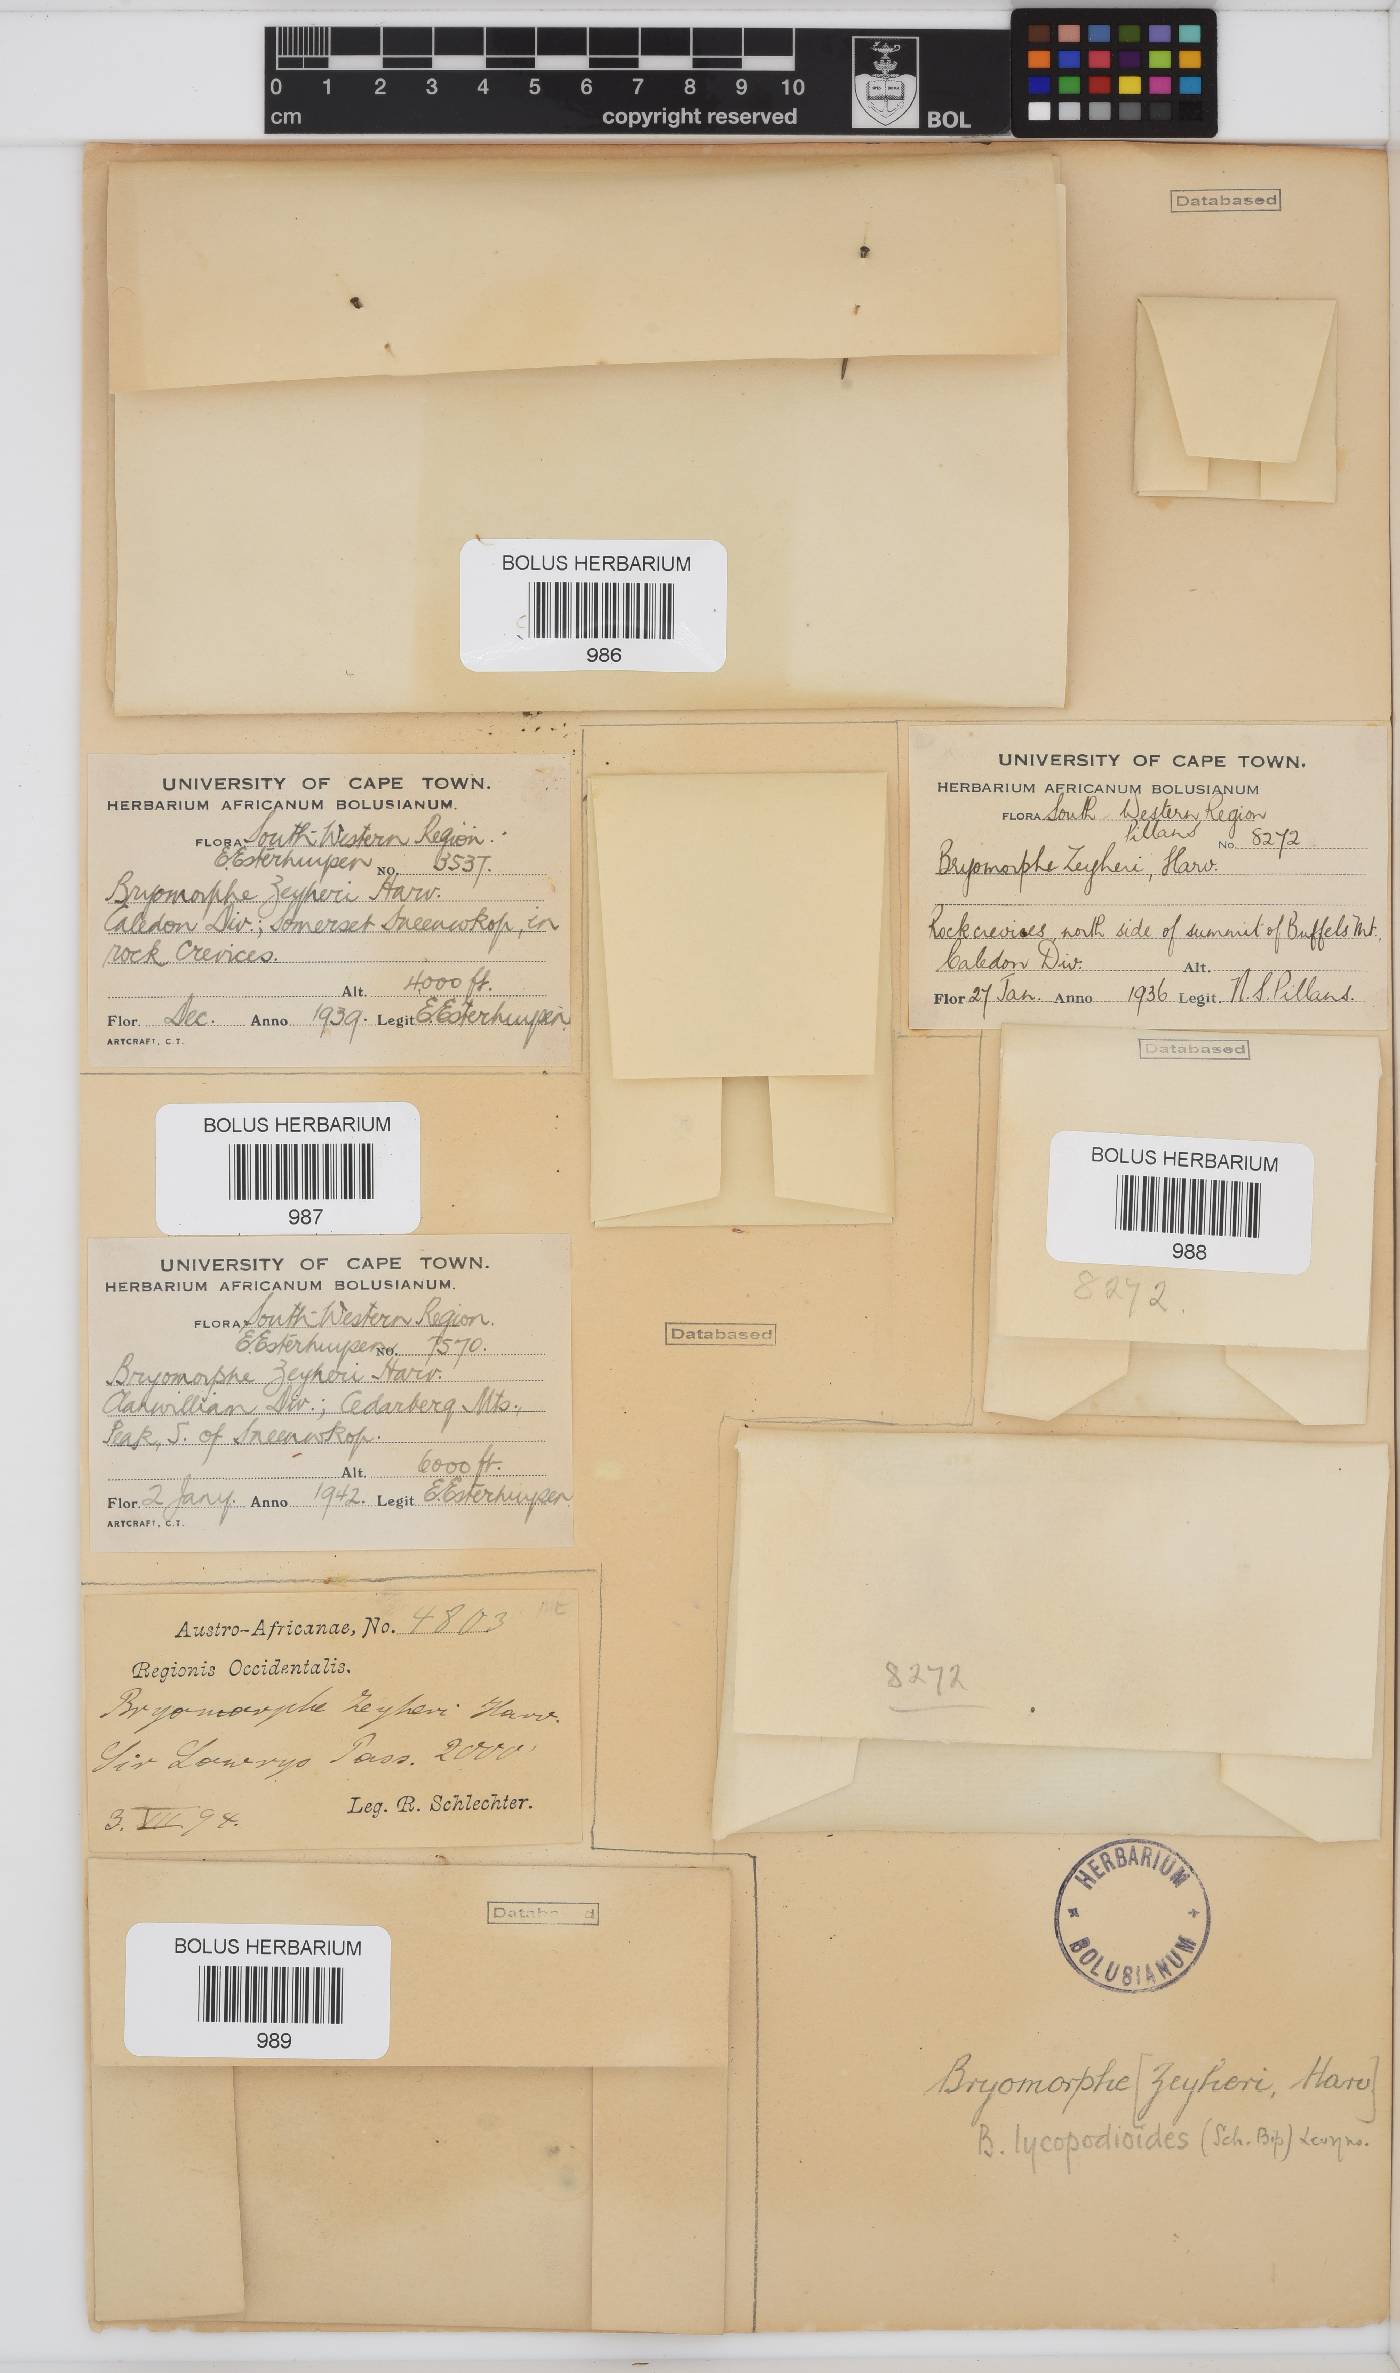 0 1 2 3 4 5 6 7 8 9 10
cm copyright reserved BOL
Databased
BOLUS HERBARIUM
986
UNIVERSITY OF CAPE TOWN.
HERBARIUM AFRICANUM BOLUSIANUM.
FLORA South-Western Region.
E. Esterhuysen No. 3537.
Bryomorphe Zeyheri Harv.
Caledon Div.; Somerset Sneeuwkop, in
rock crevices.
Alt. 4000 ft.
Flor. Dec. Anno 1939. Legit E. Esterhuysen
ARTCRAFT, C.T.
UNIVERSITY OF CAPE TOWN.
HERBARIUM AFRICANUM BOLUSIANUM
FLORA South Western Region
Pillans No. 8272
Bryomorphe Zeyheri, Harv.
Rock crevices, north side of summit of Buffels Mt.,
Caledon Div. Alt.
Flor 27 Jan. Anno 1936 Legit N. S. Pillans.
Databased
BOLUS HERBARIUM
988
8272.
BOLUS HERBARIUM
987
UNIVERSITY OF CAPE TOWN.
HERBARIUM AFRICANUM BOLUSIANUM.
FLORA South-Western Region.
E. Esterhuysen No. 7570.
Bryomorphe Zeyheri Harv.
Clanwillian Div.; Cedarberg Mts.,
Peak, S. of Sneeuwkop.
Alt. 6000 ft.
Flor. 2 Jany. Anno 1942. Legit E. Esterhuysen
ARTCRAFT, C.T.
Databased
8272
Austro-Africanae, No. 4803
Regionis Occidentalis.
Bryomorphe Zeyheri Harv.
Sir Lowrys Pass. 2000'
3. VII. 94. Leg. R. Schlechter.
Databased
BOLUS HERBARIUM
989
HERBARIUM
BOLUSIANUM
Bryomorphe [Zeyheri, Harv]
B. lycopodioides (Sch. Bip) Levyns.